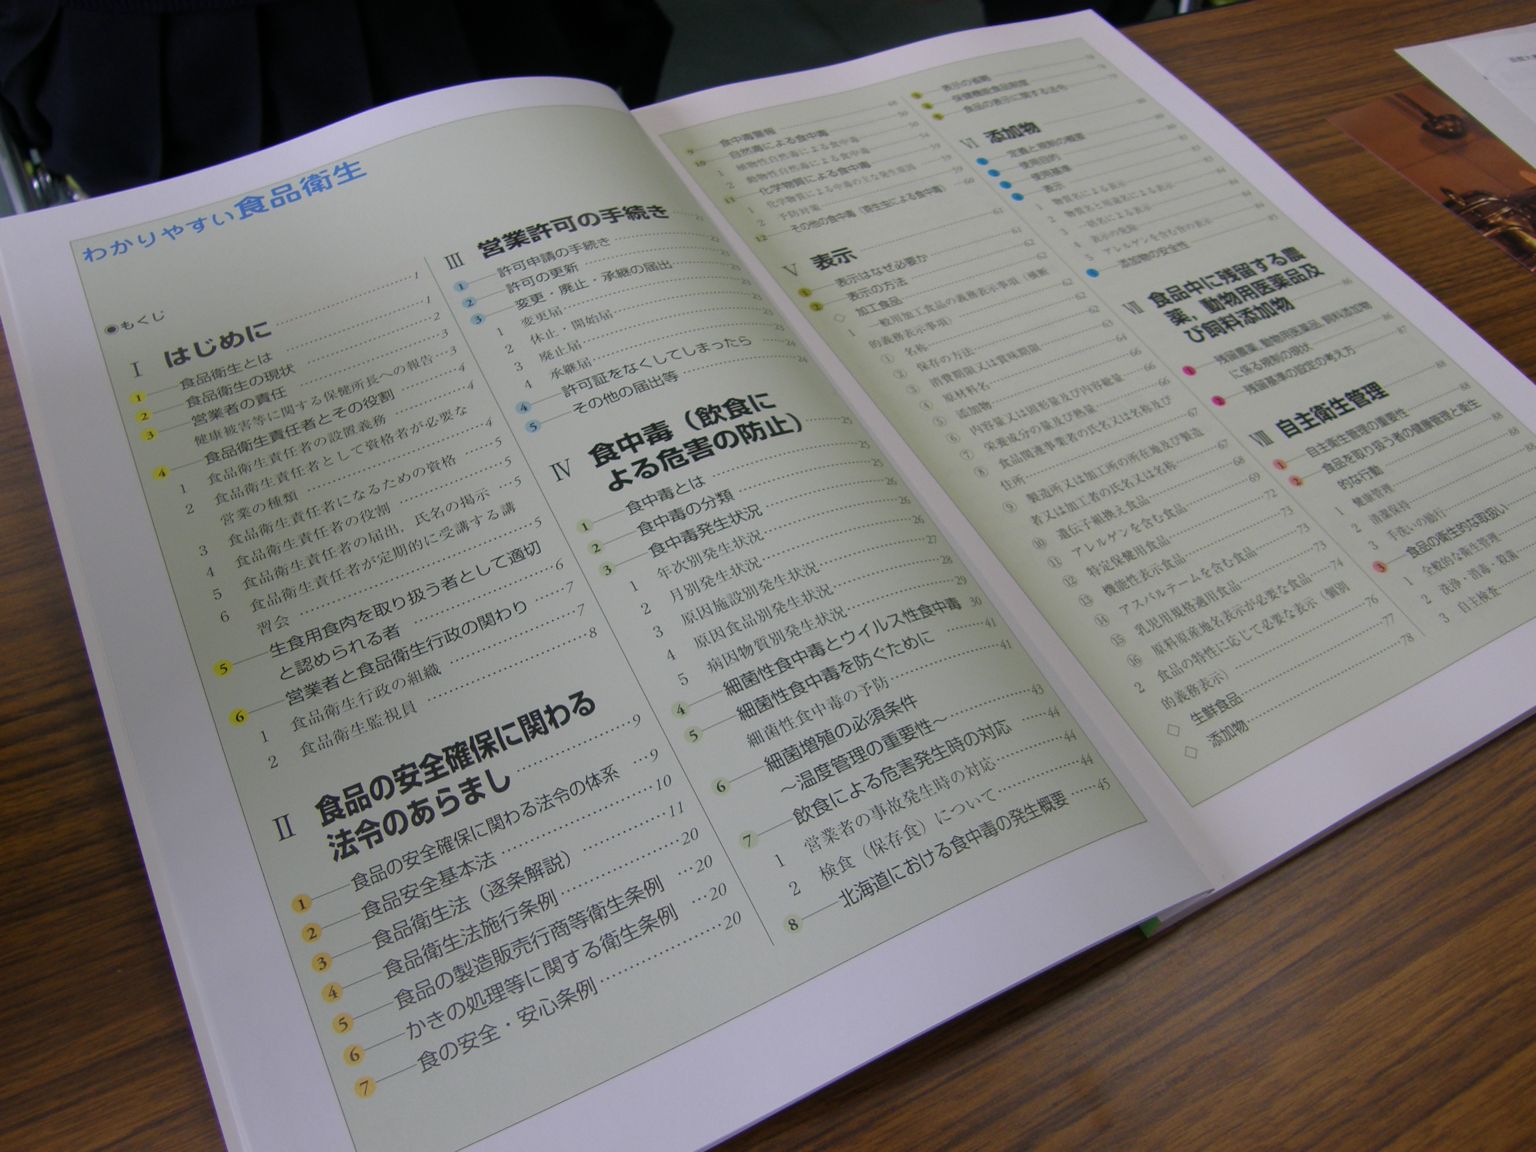 わかりやすい食品衛生
●もくじ
Ⅰ はじめに 1
1 食品衛生とは 1
2 食品衛生の現状 2
3 営業者の責任 3
健康被害等に関する保健所長への報告 3
4 食品衛生責任者とその役割 4
1 食品衛生責任者の設置義務 4
2 食品衛生責任者として資格者が必要な
営業の種類 4
3 食品衛生責任者になるための資格 5
4 食品衛生責任者の役割 5
5 食品衛生責任者の届出、氏名の掲示 5
6 食品衛生責任者が定期的に受講する講
習会 5
5 生食用食肉を取り扱う者として適切
と認められる者 6
6 営業者と食品衛生行政の関わり 7
1 食品衛生行政の組織 7
2 食品衛生監視員 8
Ⅱ 食品の安全確保に関わる
法令のあらまし 9
1 食品の安全確保に関わる法令の体系 9
2 食品安全基本法 10
3 食品衛生法（逐条解説） 11
4 食品衛生法施行条例 20
5 食品の製造販売行商等衛生条例 20
6 かきの処理等に関する衛生条例 20
7 食の安全・安心条例 20
Ⅲ 営業許可の手続き 22
1 許可申請の手続き
2 許可の更新
3 変更・廃止・承継の届出 23
1 変更届 23
2 休止・開始届 23
3 廃止届 23
4 承継届
4 許可証をなくしてしまったら 24
5 その他の届出等 24
Ⅳ 食中毒（飲食に
よる危害の防止） 25
1 食中毒とは 25
2 食中毒の分類 25
3 食中毒発生状況 26
1 年次別発生状況 26
2 月別発生状況 26
3 原因施設別発生状況 27
4 原因食品別発生状況 28
5 病因物質別発生状況 29
4 細菌性食中毒とウイルス性食中毒 30
5 細菌性食中毒を防ぐために 41
細菌性食中毒の予防 41
6 細菌増殖の必須条件
～温度管理の重要性～ 43
7 飲食による危害発生時の対応 44
1 営業者の事故発生時の対応 44
2 検食（保存食）について 44
8 北海道における食中毒の発生概要 45
9 食中毒警報
10 自然毒による食中毒 50
1 植物性自然毒による食中毒 50
2 動物性自然毒による食中毒
11 化学物質による食中毒 59
1 化学物質による中毒の主な発生原因 59
2 予防対策
12 その他の食中毒（寄生虫による食中毒） 60
Ⅴ 表示 62
1 表示はなぜ必要か 62
2 表示の方法 62
◇ 加工食品 62
1 一般用加工食品の義務表示事項（横断
的義務表示事項） 62
① 名称 62
② 保存の方法 63
③ 消費期限又は賞味期限 64
④ 原材料名 64
⑤ 添加物 66
⑥ 内容量又は固形量及び内容総量 66
⑦ 栄養成分の量及び熱量 66
⑧ 食品関連事業者の氏名又は名称及び
住所 67
⑨ 製造所又は加工所の所在地及び製造
者又は加工者の氏名又は名称 67
⑩ 遺伝子組換え食品 68
⑪ アレルゲンを含む食品 69
⑫ 特定保健用食品 72
⑬ 機能性表示食品 73
⑭ アスパルテームを含む食品 73
⑮ 乳児用規格適用食品 73
⑯ 原料原産地名表示が必要な食品 74
2 食品の特性に応じて必要な表示（個別
的義務表示） 76
◇ 生鮮食品 77
◇ 添加物 78
表示の省略
保健機能食品制度
食品の表示に関する法令
Ⅵ 添加物
定義と規制の概要
使用目的
使用基準
表示
1 物質名による表示
2 物質名と用途名による表示
3 一括名による表示
4 表示の免除
5 アレルゲンを含む旨の表示
添加物の安全性
Ⅶ 食品中に残留する農
薬，動物用医薬品及
び飼料添加物 86
1 残留農薬，動物用医薬品，飼料添加物
に係る規制の現状
2 残留基準の設定の考え方 87
Ⅷ 自主衛生管理 88
1 自主衛生管理の重要性 88
2 食品を取り扱う者の健康管理と衛生
的な行動 88
1 健康管理
2 清潔保持
3 手洗いの励行
3 食品の衛生的な取扱い
1 全般的な衛生管理
2 洗浄・消毒・殺菌
3 自主検査